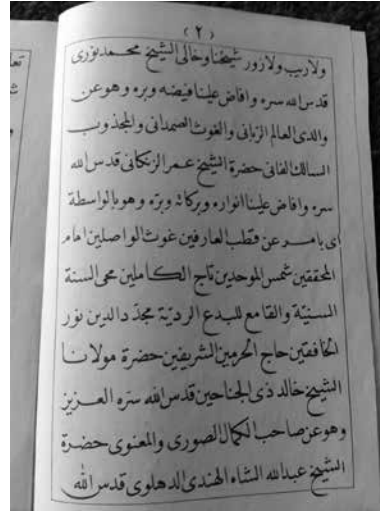 (٢)
ولاريب ولازور شيخنا وخالى الشيخ محمد نورى
قدس الله سره وافاض علينا فيضه وبره وهو عن
والدى العالم الربانى والغوث الصمدانى والمجذوب
السالك الفانى حضرة الشيخ عمر الزنكانى قدس الله
سره وافاض علينا انواره وبركاته وبره وهو بالواسطة
اى بامر عن قطب العارفين غوث الواصلين امام
المحققين شمس الموحدين تاج الكاملين محى السنة
السنية والقامع للبدع الردية مجدد الدين نور
الخافقين حاج الحرمين الشريفين حضرة مولانا
الشيخ خالد ذى الجناحين قدس الله سره العزيز
وهو عن صاحب الكمال الصورى والمعنوى حضرة
الشيخ عبدالله الشاه الهندى الدهلوى قدس الله